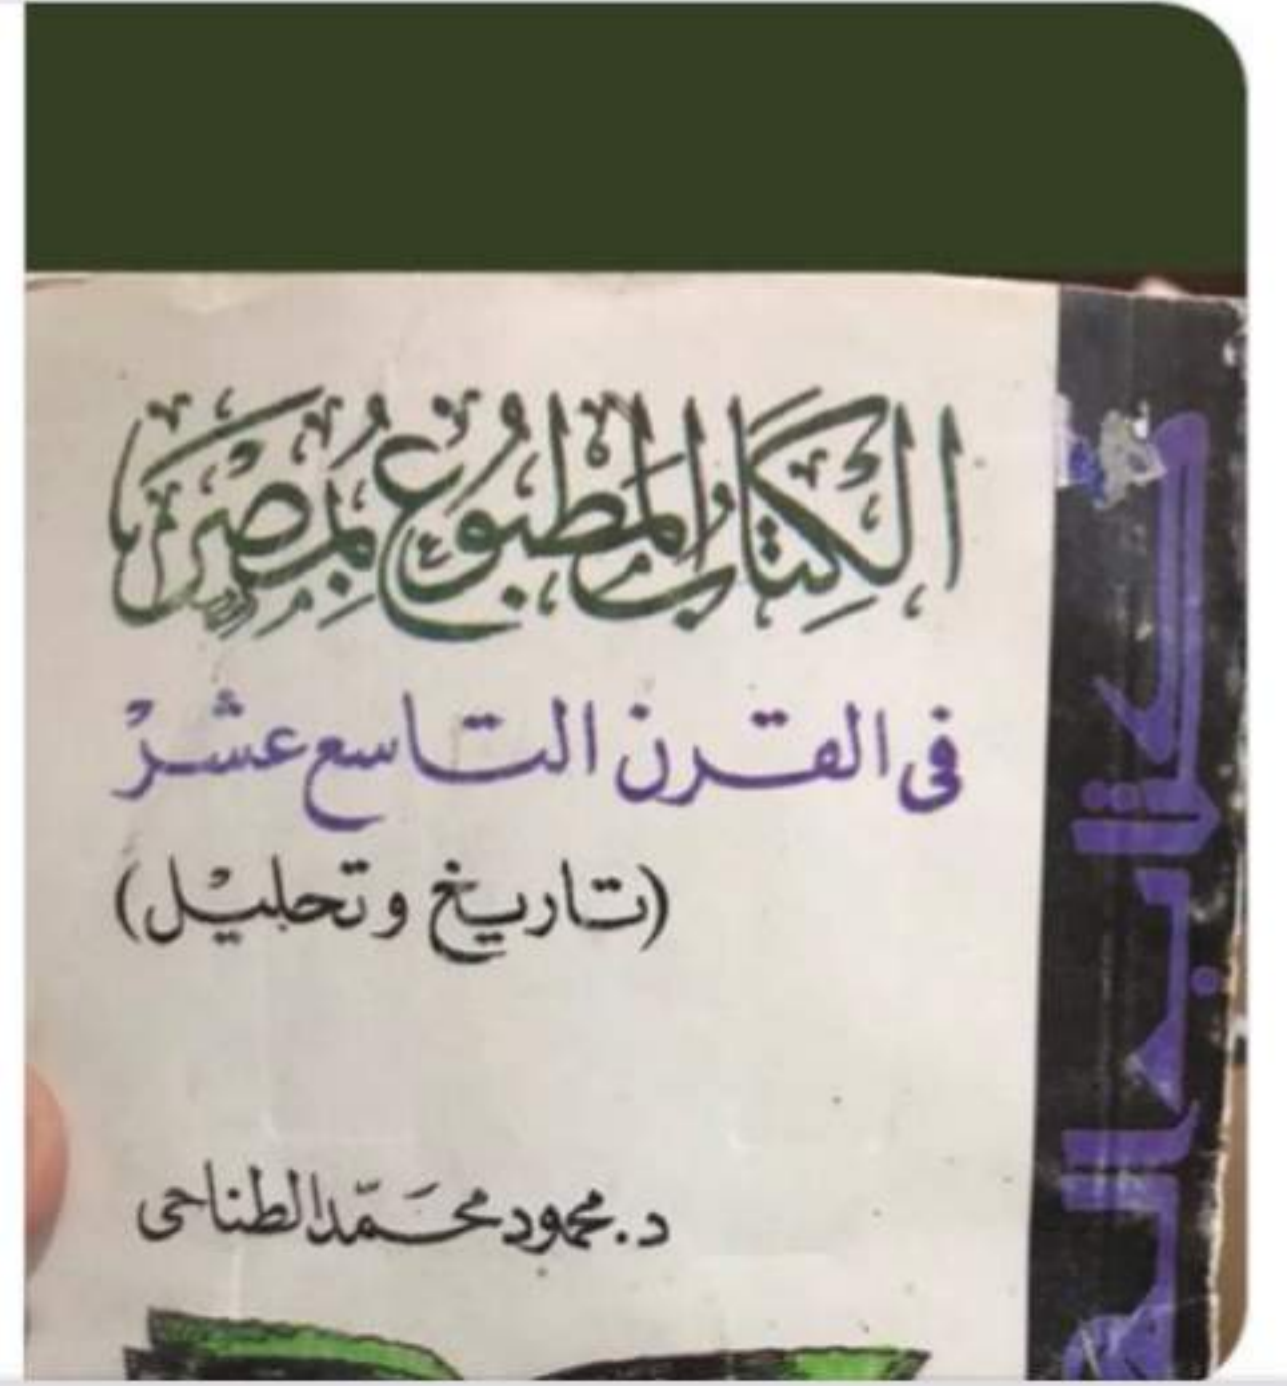 الكِتَابُ المَطْبُوعُ بمِصْرَ
في القرن التاسع عشر
(تاريخ وتحليل)
د. محمود محمّد الطناحى
كتاب الهـ